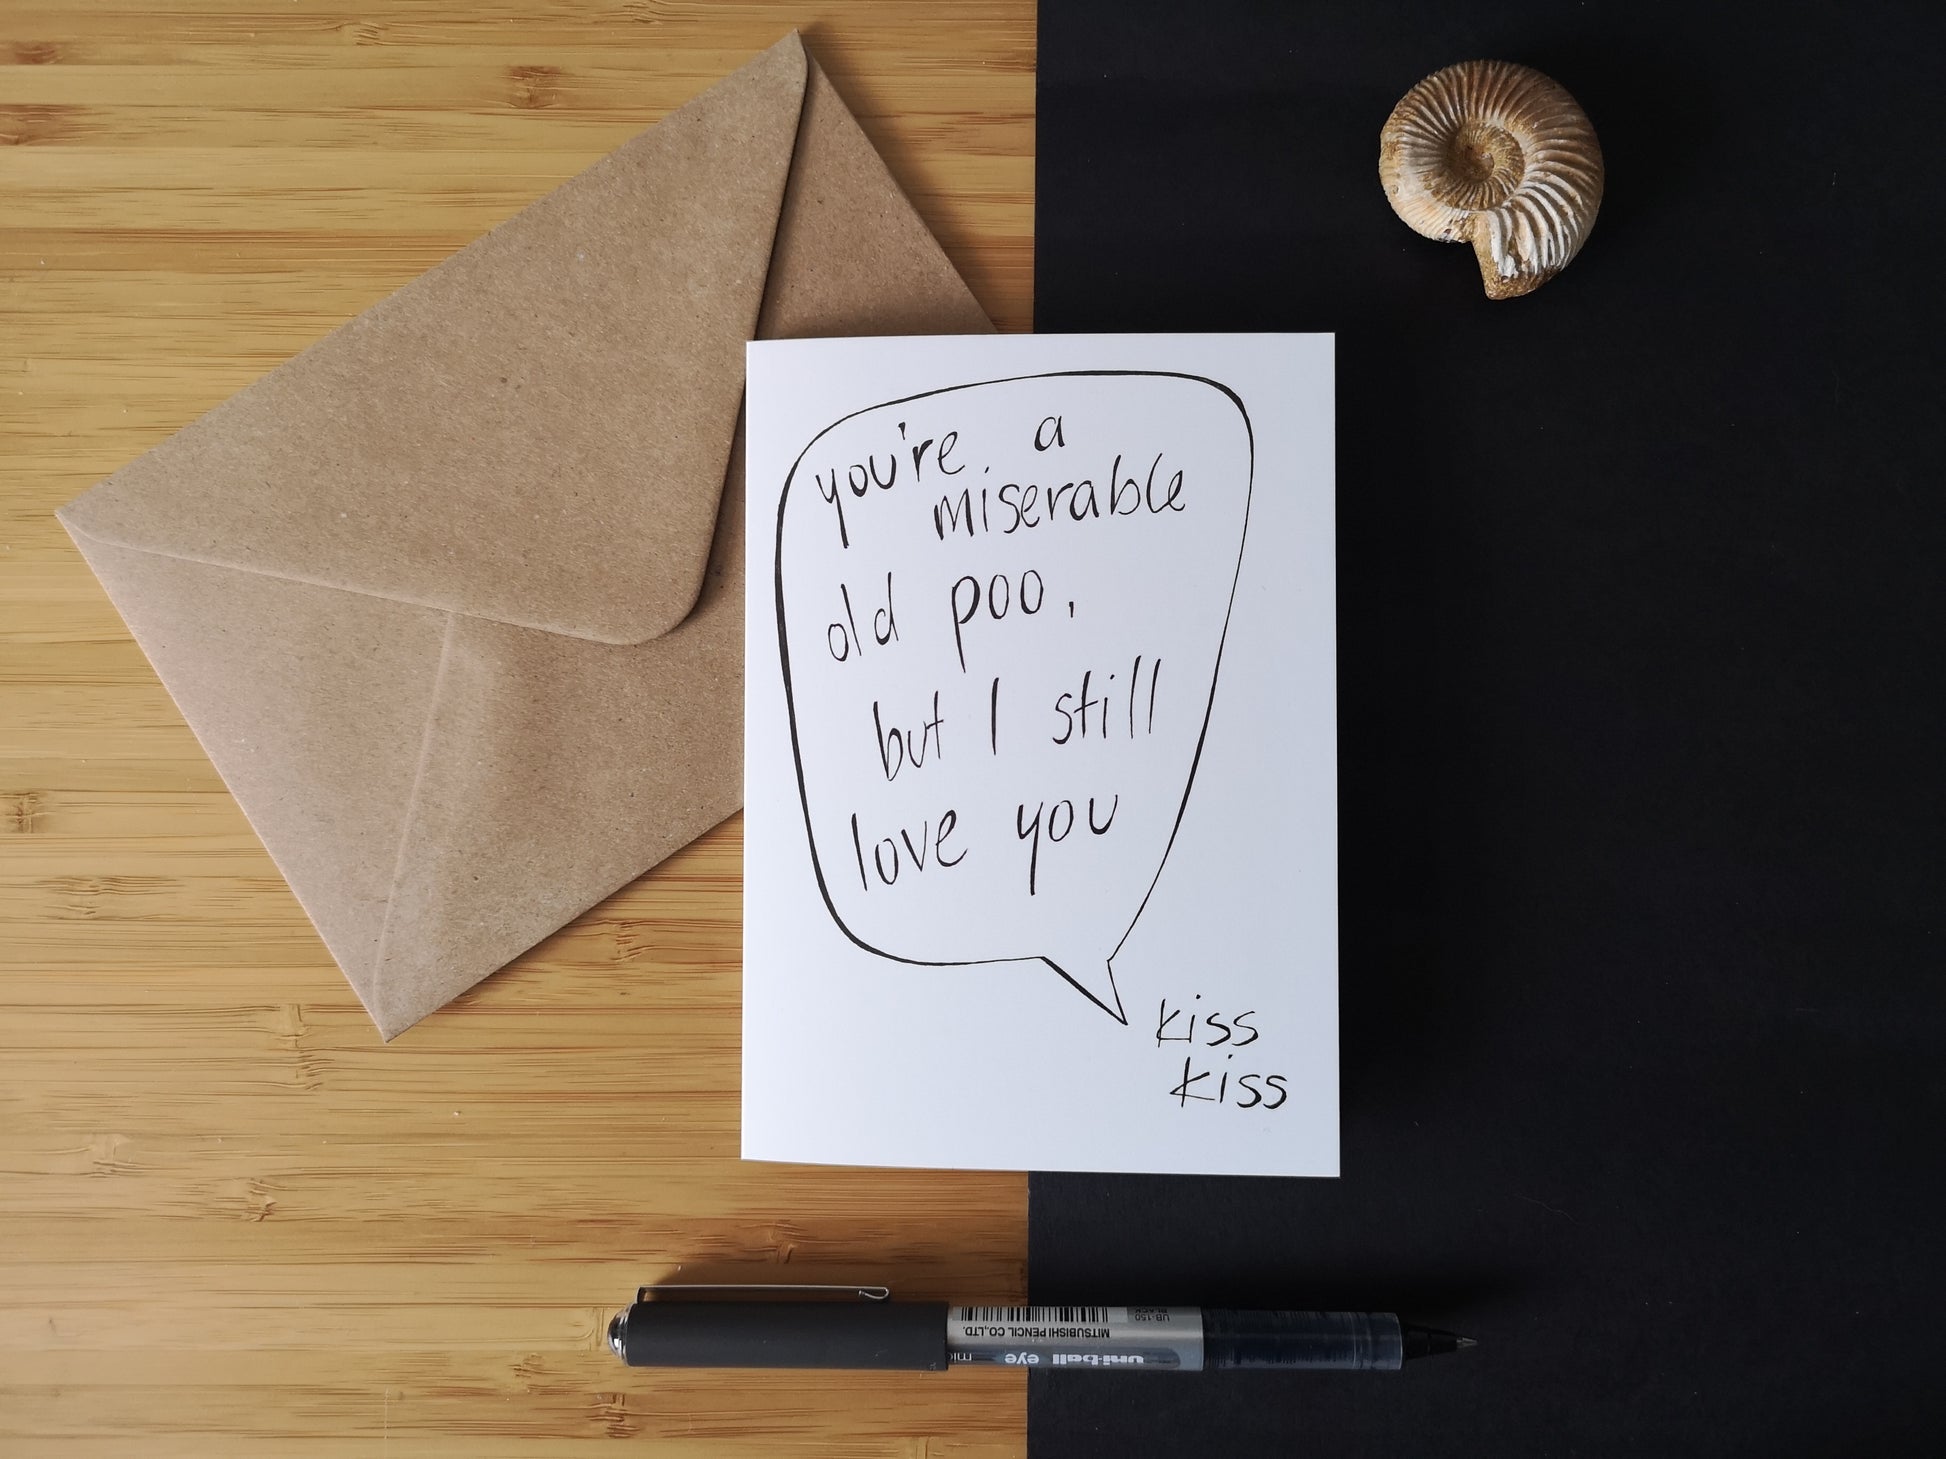 you're a
miserable
old poo,
but I still
love you
kiss
kiss
UB-150
BLACK
MITSUBISHI PENCIL CO.,LTD.
uni-ball eye